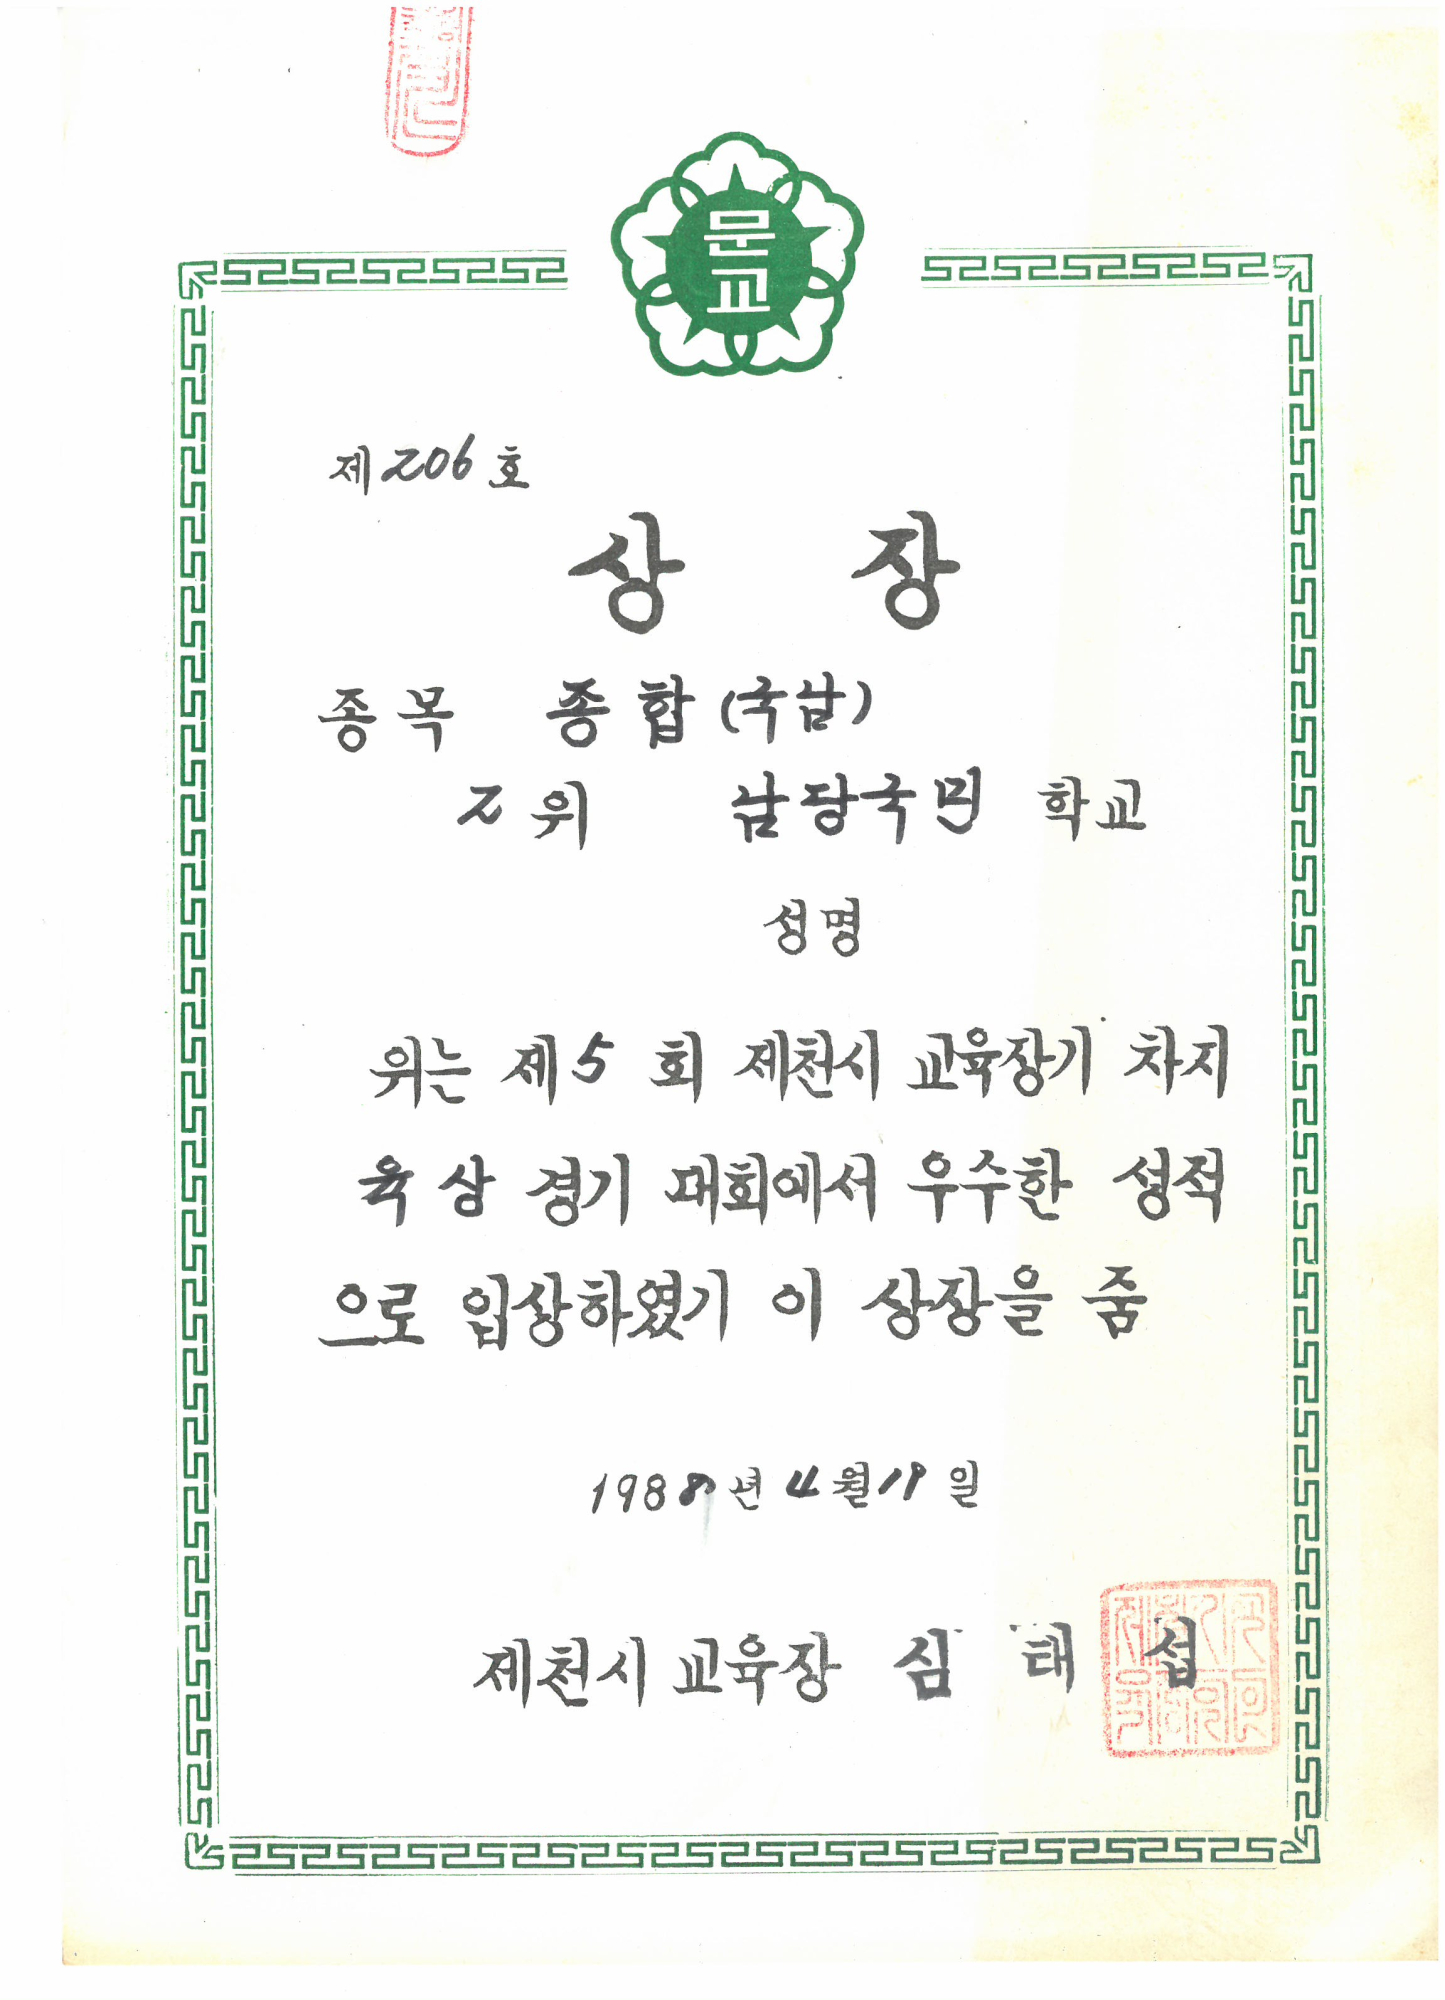 문교
제 206 호
상 장
종목 종합 (국남)
2 위 남당국민 학교
성명
위는 제 5 회 제천시 교육장기 차지
육상 경기 대회에서 우수한 성적
으로 입상하였기 이 상장을 줌
1988년 4월 19일
제천시 교육장 심 태 섭